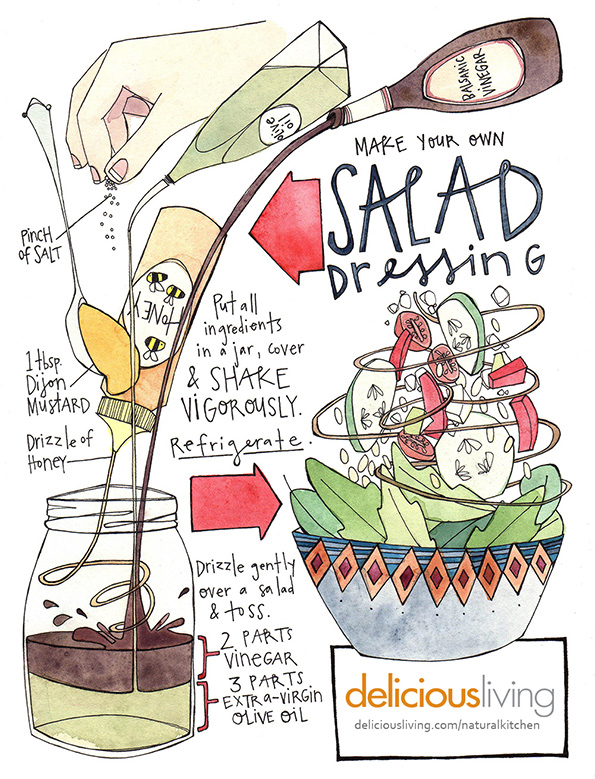 MAKE YOUR OWN
SALAD
DressinG
BALSAMIC
VINEGAR
olive
oil
PiNCH
of SALT
HONEY
1 tbsp.
Dijon
MUSTARD
Drizzle of
Honey
Put all
ingredients
in a jar, cover
& SHAKE
VIGOROUSLY.
Refrigerate.
Drizzle gently
over a salad
& toss.
2 PARTS
Vinegar
3 PARTS
EXTRA-VIRGIN
OLIVE OIL
deliciousliving
deliciousliving.com/naturalkitchen